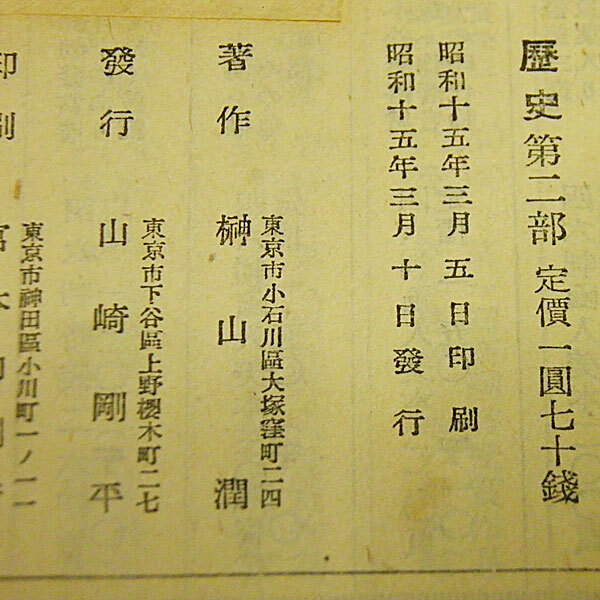 歷史第二部 定價一圓七十錢
昭和十五年三月五日印刷
昭和十五年三月十日發行
東京市小石川區大塚窪町二四
著作 榊山潤
東京市下谷區上野櫻木町二七
發行 山崎剛平
東京市神田區小川町一ノ一一
印刷